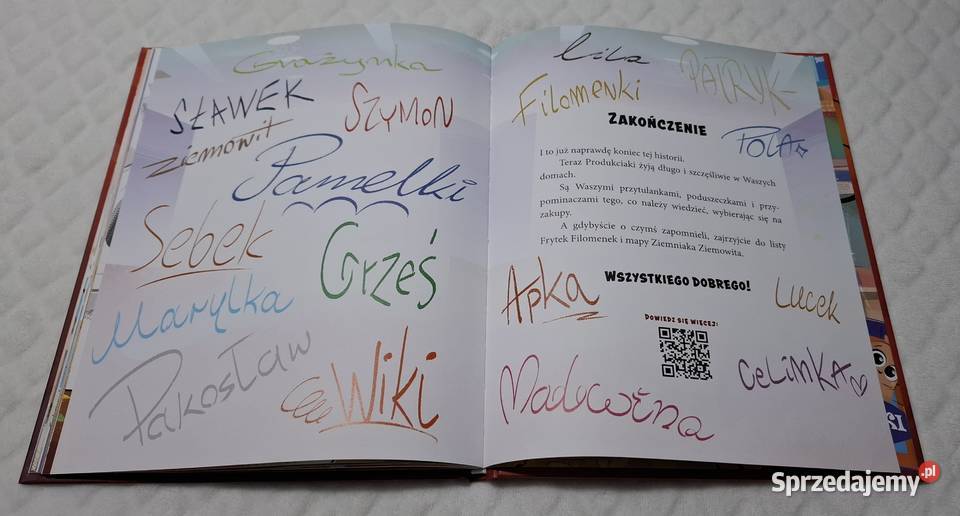 Grażynka
SŁAWEK
SZYMON
ziemowit
Pamelki
Sebek
Grześ
Marylka
Pakosław
Wiki
Lila
PATRYK
Filomenki
ZAKOŃCZENIE
POLA
I to już naprawdę koniec tej historii.
Teraz Produkciaki żyją długo i szczęśliwie w Waszych
domach.
Są Waszymi przytulankami, poduszeczkami i przy-
pominaczami tego, co należy wiedzieć, wybierając się na
zakupy.
A gdybyście o czymś zapomnieli, zajrzyjcie do listy
Frytek Filomenek i mapy Ziemniaka Ziemowita.
WSZYSTKIEGO DOBREGO!
Apka
Lucek
DOWIEDZ SIĘ WIĘCEJ:
CELIMKA
Sprzedajemy.pl